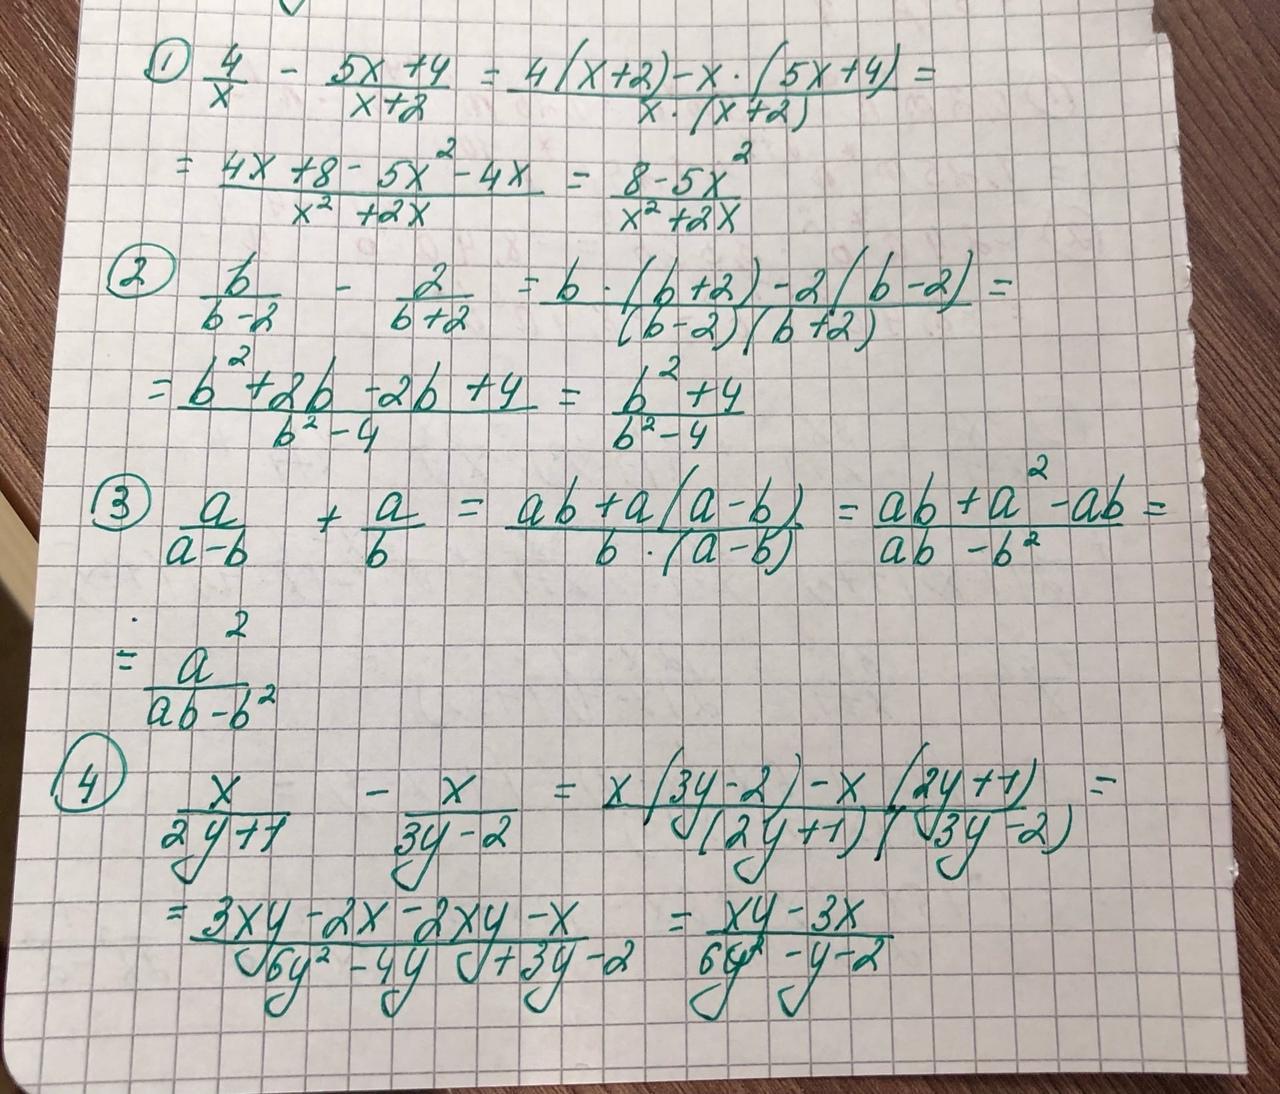 ① 4/x - (5x+4)/(x+2) = (4(x+2)-x·(5x+4))/(x·(x+2)) =
= (4x+8-5x²-4x)/(x²+2x) = (8-5x²)/(x²+2x)
② b/(b-2) - 2/(b+2) = (b·(b+2)-2(b-2))/((b-2)(b+2)) =
= (b²+2b-2b+4)/(b²-4) = (b²+4)/(b²-4)
③ a/(a-b) + a/b = (ab+a(a-b))/(b·(a-b)) = (ab+a²-ab)/(ab-b²) =
= a²/(ab-b²)
④ x/(2y+1) - x/(3y-2) = (x(3y-2)-x(2y+1))/((2y+1)(3y-2)) =
= (3xy-2x-2xy-x)/(6y²-4y+3y-2) = (xy-3x)/(6y²-y-2)